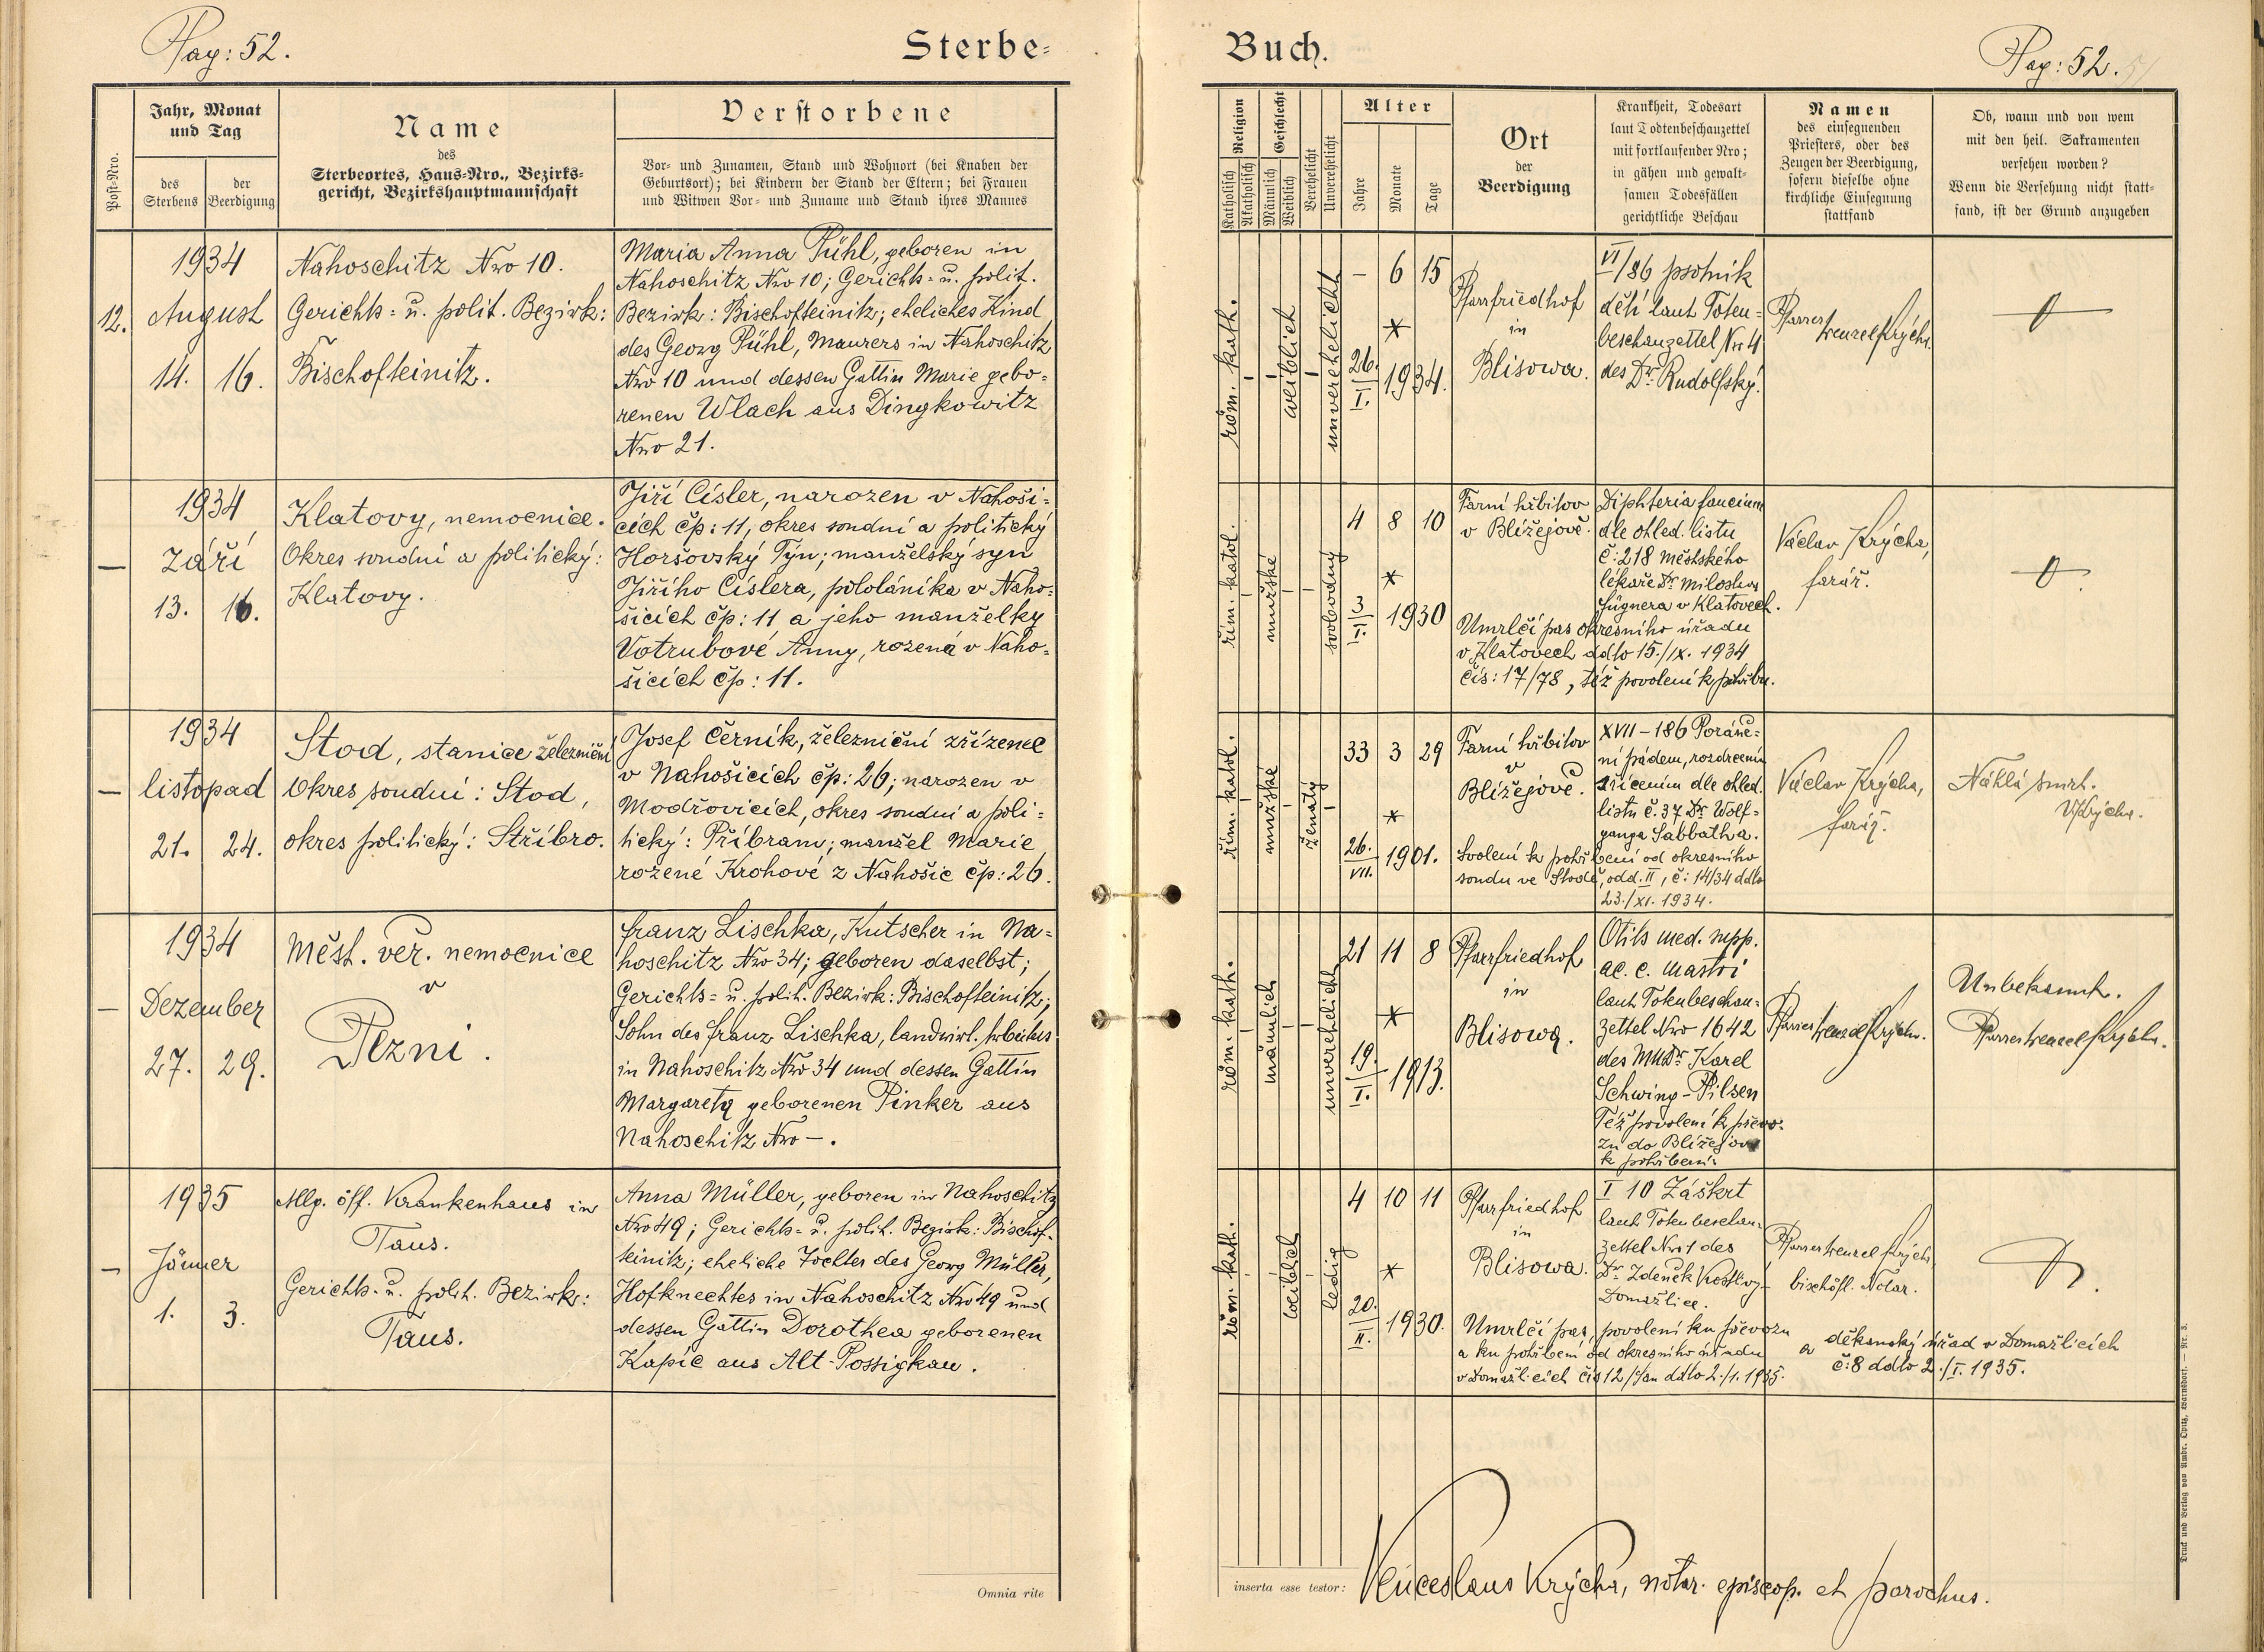 Pag: 52.
Sterbe-
Post-Nro.
Jahr, Monat
und Tag
des
Sterbens
der
Beerdigung
Name
des
Sterbeortes, Haus-Nro., Bezirks-
gericht, Bezirkshauptmannschaft
Verstorbene
Vor- und Zunamen, Stand und Wohnort (bei Knaben der
Geburtsort); bei Kindern der Stand der Eltern; bei Frauen
und Witwen Vor- und Zuname und Stand ihres Mannes
12.
1934
August
14. 16.
Nahoschitz Nro 10.
Gerichts- u. polit. Bezirk:
Bischofteinitz.
Maria Anna Pühl, geboren in
Nahoschitz Nro 10; Gerichts- u. polit.
Bezirk: Bischofteinitz; eheliches Kind
des Georg Pühl, Maurers in Nahoschitz
Nro 10 und dessen Gattin Marie gebo-
renen Wlach aus Dingkowitz
Nro 21.
—
1934
září
13. 16.
Klatovy, nemocnice.
Okres soudní a politický:
Klatovy.
Jiří Císler, narozen v Nahoši-
cích čp: 11, okres soudní a politický
Horšovský Týn; manželský syn
Jiřího Císlera, pololáníka v Naho-
šicích čp: 11 a jeho manželky
Votrubové Anny, rozená v Naho-
šicích čp: 11.
—
1934
listopad
21. 24.
Stod, stanice železniční
Okres soudní: Stod,
okres politický: Stříbro.
Josef Černík, železniční zřízenec
v Nahošicích čp: 26; narozen v
Modřovicích, okres soudní a poli-
tický: Příbram; manžel Marie
rozené Krohové z Nahošic čp: 26.
—
1934
Dezember
27. 29.
Měst. veř. nemocnice
v
Plzni.
Franz Lischka, Kutscher in Na-
hoschitz Nro 34; geboren daselbst;
Gerichts- u. polit. Bezirk: Bischofteinitz;
Sohn des Franz Lischka, landwirt. Arbeiters
in Nahoschitz Nro 34 und dessen Gattin
Margareta geborenen Pinker aus
Nahoschitz Nro —.
—
1935
Jänner
1. 3.
Allg. öff. Krankenhaus in
Taus.
Gerichts- u. polit. Bezirk:
Taus.
Anna Müller, geboren in Nahoschitz
Nro 49; Gerichts- u. polit. Bezirk: Bischof-
teinitz; eheliche Tochter des Georg Müller,
Hofknechtes in Nahoschitz Nro 49 und
dessen Gattin Dorothea geborenen
Kapic aus Alt-Possigkau.
Omnia rite
Buch.
Pag: 52.
Religion
Katholisch
Akatholisch
Geschlecht
Männlich
Weiblich
Verehelicht
Unverehelicht
Alter
Jahre
Monate
Tage
Ort
der
Beerdigung
Krankheit, Todesart
laut Todtenbeschauzettel
mit fortlaufender Nro;
in gähen und gewalt-
samen Todesfällen
gerichtliche Beschau
Namen
des einsegnenden
Priesters, oder des
Zeugen der Beerdigung,
sofern dieselbe ohne
kirchliche Einsegnung
stattfand
Ob, wann und von wem
mit den heil. Sakramenten
versehen worden?
Wenn die Versehung nicht statt-
fand, ist der Grund anzugeben
röm. kath.
weiblich
unverehelicht
— 6 15
*
26.
I. 1934.
Pfarrfriedhof
in
Blisowa.
VI/86 psotník
dětí laut Toten-
beschauzettel Nr 4
des Dr. Rudolfský.
Pfarrer Wenzel Krýcha.
řím. katol.
mužské
svobodný
4 8 10
*
3
I. 1930
Farní hřbitov
v Blížejově.
Diphteria faucium
dle ohled. listu
č: 218 městského
lékaře Dr. Miloslava
Fügnera v Klatovech.
Umrlčí pas okresního úřadu
v Klatovech ddto 15./IX. 1934
čís: 17/78, též povolení k pohřbu.
Václav Krýcha,
farář.
řím. katol.
mužské
ženatý
33 3 29
*
26.
VII. 1901.
Farní hřbitov
v
Blížejově.
XVII - 186 Poraně-
ní pádem, rozdrcením
zřícením dle ohled.
listu č. 37 Dr. Wolf-
ganga Sabbatha.
Svolení k pohřbení od okresního
soudu ve Stodě, odd. II, č: 14/34 ddto
23./XI. 1934.
Václav Krýcha,
farář.
Náhlá smrt.
VKrýcha.
röm. kath.
männlich
unverehelicht
21 11 8
*
19.
I. 1913.
Pfarrfriedhof
in
Blisowa.
Otits med. supp.
ac. c. mastoi
laut Totenbeschau-
zettel Nro 1642
des MUDr. Karel
Schwing - Pilsen
Též povolení k převo-
zu do Blížejova
k pohřbení.
Pfarrer Wenzel Krýcha.
Unbekannt.
Pfarrer Wenzel Krýcha.
röm. kath.
weiblich
ledig
4 10 11
*
20.
II. 1930.
Pfarrfriedhof
in
Blisowa.
I 10 Záškrt
laut Totenbeschau-
zettel Nro 1 des
Dr. Zdeněk Kostlivý-
Domažlice.
Umrlčí pas, povolení ku převozu
a ku pohřbení od okresního úřadu
v Domažlicích čís 12/ ddto 2./1. 1935.
Pfarrer Wenzel Krýcha
bischöfl. Notar.
a děkanský úřad v Domažlicích
č: 8 ddto 2./I. 1935.
inserta esse testor: Venceslaus Krýcha, notar. episcop. et parochus.
Druck und Verlag von Ambr. Opitz, Warnsdorf. — Nr. 3.